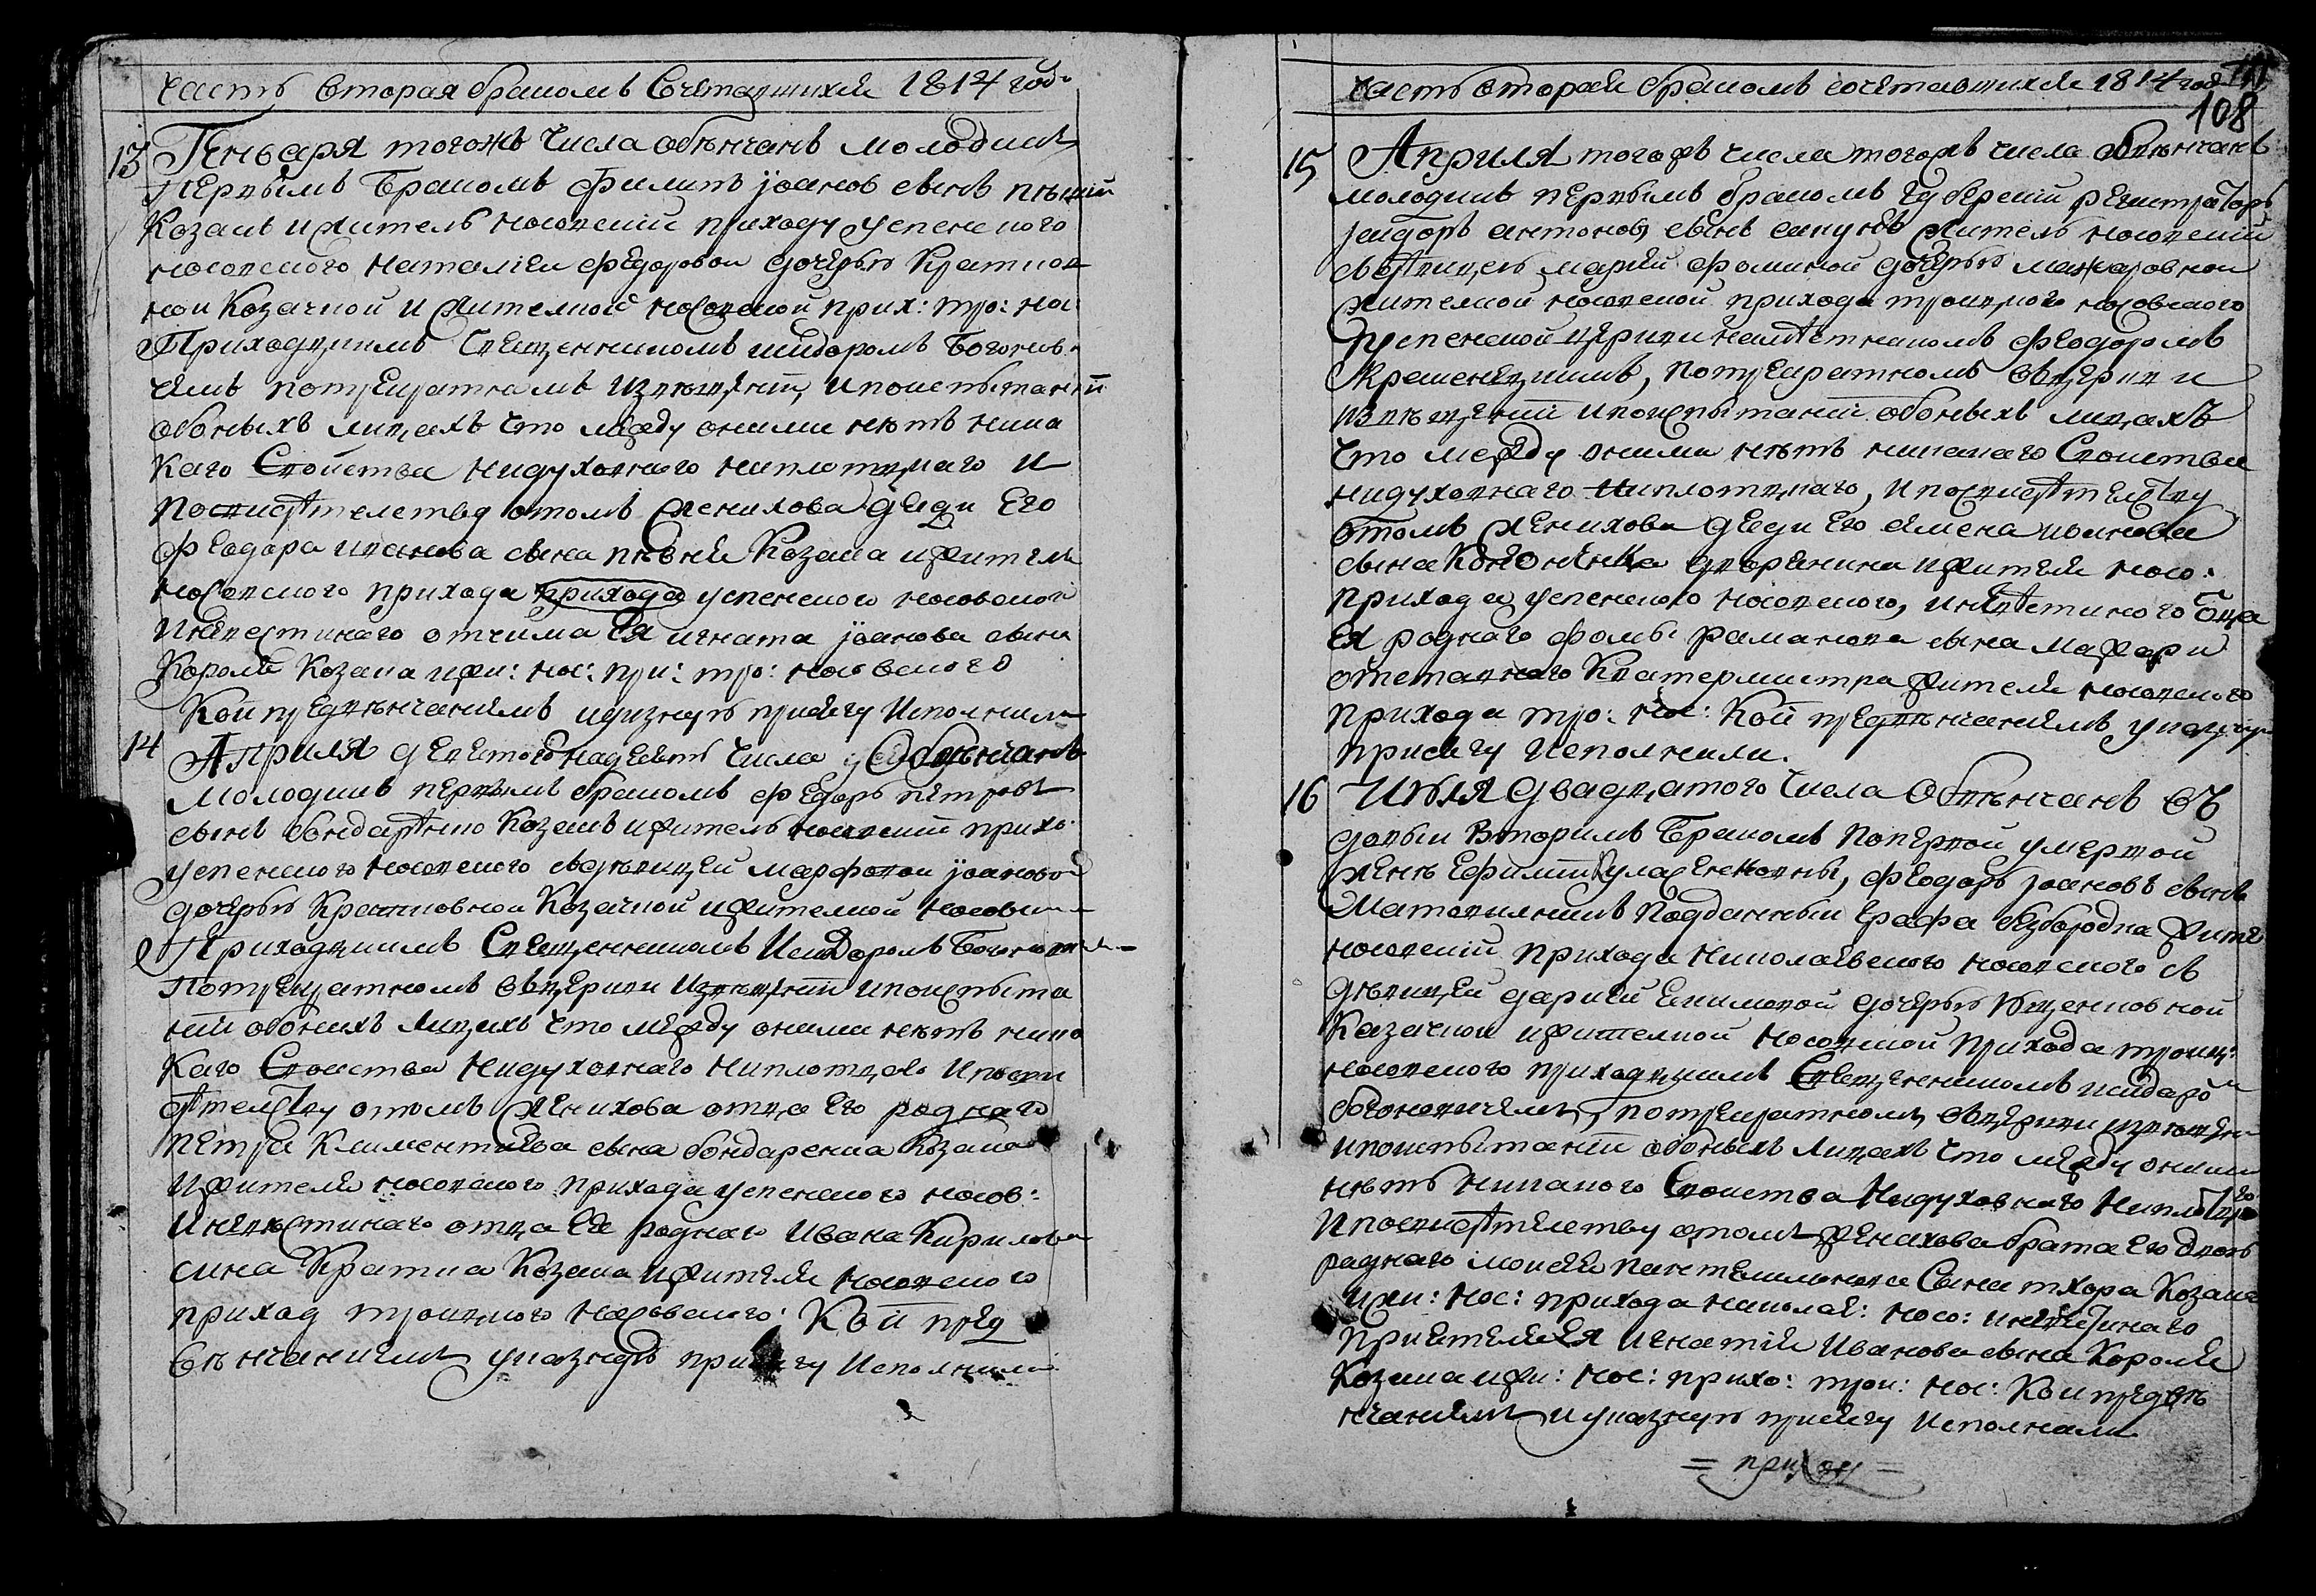 часть вторая бракомъ Сочетавшихся 1814 года
13 Генъваря тогожъ Числа обвѣнчанъ молодикъ
первымъ Бракомъ Филипъ јоановъ сынъ
Козакъ и житель носовскій приходу успенского
носовского Наталіею федоровою дочерью
ною Козачкою и жителкою носовскою прих: тро: нос:
Приходскимъ Священникомъ исидоромъ Богонов
чемъ потрекратномъ извѣщеніи, и поиспытаніи
обоныхъ лицахъ что между оними нѣтъ ника
каго Свойства нидуховнаго ниплотскаго и
посвидѣтелству отомъ женихова дяди Его
феодора иванова сына Козака и жителя
носовского прихода прихода успенского носовского
Иневѣстинаго отчима Ея игната јоанова сына
Короля Козака ижи: нос: при: тро: носовского
Кои предвѣнчаніемъ иуказную присягу Исполнили
14 Априля девятогонадесять Числа Обвѣнчанъ
молодикъ первымъ бракомъ федоръ петровъ
сынъ бондаренко Козакъ ижитель носовскій прихо:
успенского носовского сдѣвицей марфою јоановою
дочерью Кратковною Козачкою ижителкою носовскою
Приходскимъ Священникомъ Исидоромъ
Потрекратномъ вцеркви извѣщеніи ипоиспыта
ніи обонихъ лицахъ Что между оними нѣтъ ника
каго Свойства нидуховнаго ниплотскаго Ипосви
дѣтелству отомъ женихова отца Его роднаго
петра Климентиева сына бондаренка Козака
ижителя носовского прихода успенского носов:
Иневѣстинаго отца Ея роднаго Ивана Кирилова
сина Кратка Козака ижителя носовского
приход троицкого носовского: Кои пред
вѣнчаніемъ указную присягу Исполнили
часть вторая бракомъ сочетавшихся 1814 года
108
15 Априля тогожъ числа тогожъ числа обвѣнчанъ
молодикъ первымъ бракомъ Губернскій регистраторъ
јсидоръ антоновъ сынъ житель носовскій
сдѣвицею маріей фоминой дочерью мажаровной
жителкой носовской прихода троицкого носовского
успенской церкви намѣстникомъ феодоромъ
Крашеницкимъ, потрекратномъ вцеркви
извѣщеніи ипоиспытаніи обоныхъ лицахъ
Что между оними нѣтъ никакаго Свойства
нидуховнаго ниплотскаго, ипосвидѣтелству
отомъ женихова дяди Его иванова
сына дворянина ижителя носо:
прихода успенского носовского, иневѣстиного отца
Ея роднаго фомы раманова сына мажари
отставнаго Квартермистра жителя носовского
прихода тро: нос: Кои предвѣнчаніемъ указную
присягу Исполнили.
16 Июля двадцатого Числа Обвѣнчанъ въ
довый Вторимъ Бракомъ попервой умершой
женѣ Ефиміи, феодоръ јоановъ сынъ
подданный Графа безбородка жите
носовскій прихода николаевского носовского съ
дѣвицей дарией дочерью
Казачкой ижителкой носовской прихода троиц:
носовского приходскимъ Священникомъ исидаро
богоновичемъ, потрекратномъ вцеркви извѣщени
ипоиспытаніи обоныхъ лицахъ Что между оними
нѣтъ никакого Свойства нидуховнаго ниплотскаго
Ипосвидѣтелству отомъ женихова брата Его двою
роднаго моисея пантелимонова Сына тхора Козака
ижи: нос: прихода николае: носо: иневѣстинаго
приятеля Ея игнатія Иванова сына Короля
Козака ижи: нос: прихо: трои: нос: Кои предвѣ
нчаніемъ иуказную присягу Исполнили